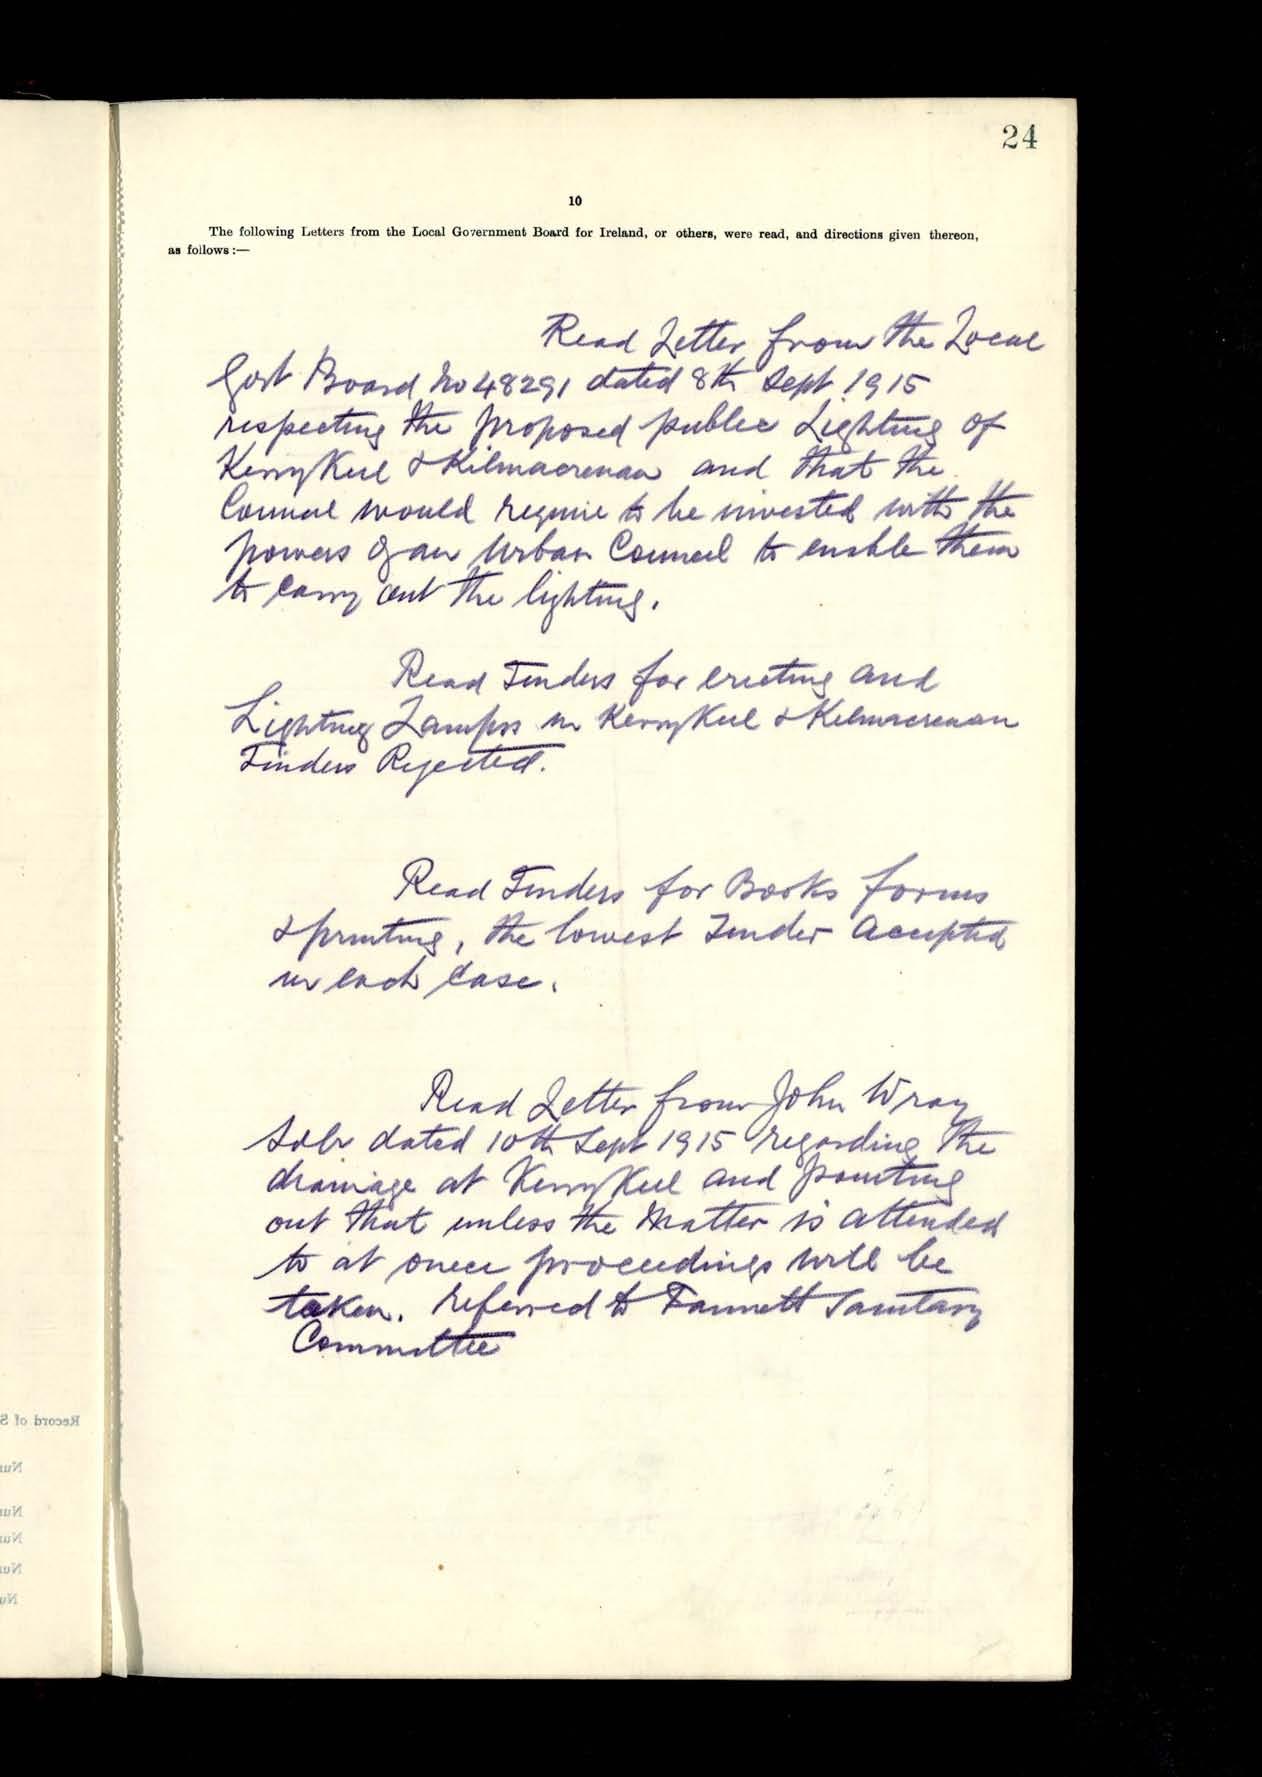 24
10
The following Letters from the Local Government Board for Ireland, or others, were read, and directions given thereon,
as follows :—
Read Letter from the Local
Govt Board No 48291 dated 8th Sept 1915
respecting the proposed public Lighting of
KerryKeel & Kilmacrenan and that the
Council would require to be invested with the
powers of an Urban Council to enable them
to carry out the lighting.
Read Tenders for erecting and
Lighting Lamps in KerryKeel & Kilmacrenan
Tenders Rejected.
Read Tenders for Books forms
& printing, the lowest Tender Accepted
in each case.
Read Letter from John Wray
Solr dated 10th Sept 1915 regarding the
drainage at KerryKeel and pointing
out that unless the Matter is attended
to at once proceedings will be
taken. referred to Fannett Sanitary
Committee
Record of S
Nu
Nu
Nu
Nu
Nu